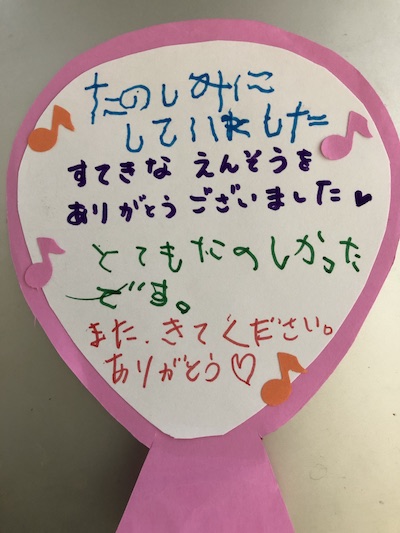 たのしみに
していました
すてきな えんそうを
ありがとうございました♥
とてもたのしかった
です。
また、きてください。
ありがとう♡